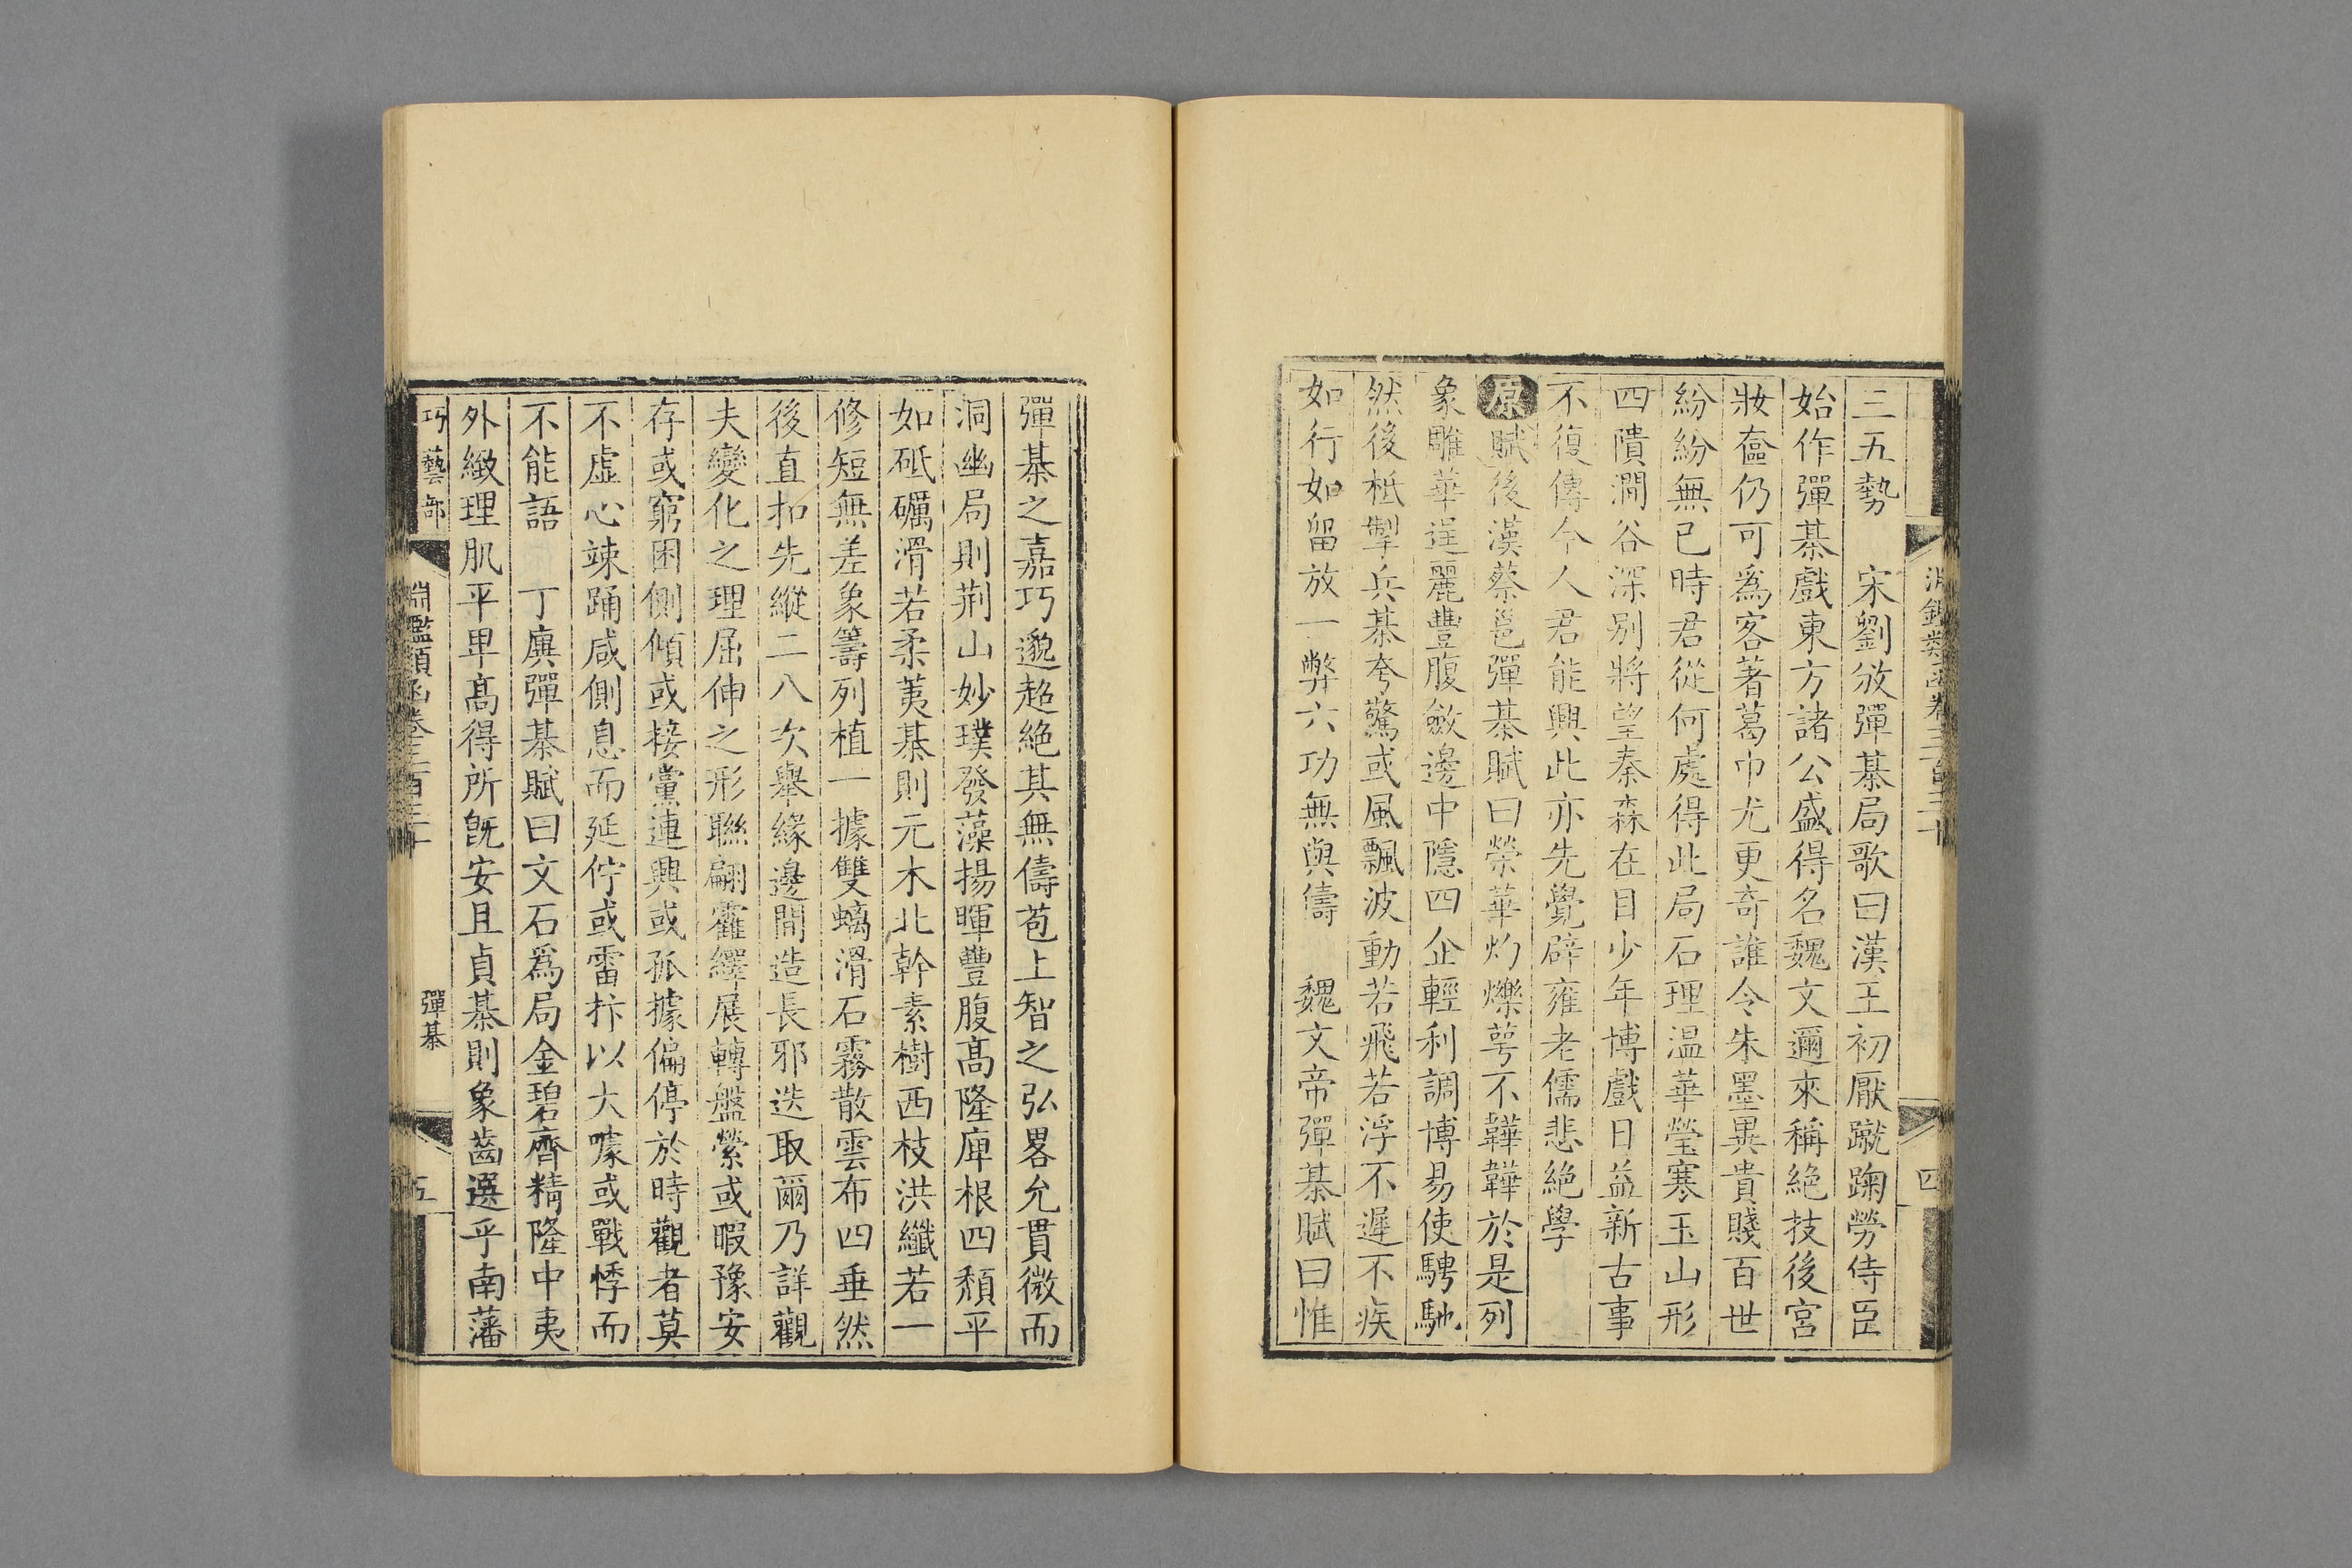 三五勢　宋劉攽彈棊局歌曰漢王初厭蹴踘勞侍臣
始作彈棊戲東方諸公盛得名魏文邇來稱絶技後宮
妝奩仍可爲客著葛巾尤更奇誰令朱墨異貴賤百世
紛紛無已時君從何處得此局石理温華瑩寒玉山形
四隤澗谷深别將望秦森在目少年博戲日益新古事
不復傳今人君能興此亦先覺辟雍老儒悲絶學
原賦後漢蔡邕彈棊賦曰榮華灼爍萼不韡韡於是列
象雕華逞麗豐腹斂邊中隱四企輕利調博易使騁馳
然後柢掣兵棊夸驚或風飄波動若飛若浮不遲不疾
如行如留放一弊六功無與儔　魏文帝彈棊賦曰惟
四
彈棊之嘉巧邈超絶其無儔苞上智之弘畧允貫微而
洞幽局則荆山妙璞發藻揚暉豐腹髙隆庳根四頽平
如砥礪滑若柔荑棊則元木北幹素樹西枝洪纖若一
修短無差象籌列植一據雙螭滑石霧散雲布四垂然
後直扣先縱二八次舉緣邊間造長邪迭取爾乃詳觀
夫變化之理屈伸之形聯翩霍繹展轉盤縈或暇豫安
存或窮困側傾或接黨連興或孤據偏停於時觀者莫
不虛心竦踊咸側息而延佇或雷抃以大噱或戰悸而
不能語　丁廙彈棊賦曰文石爲局金碧齊精隆中夷
外緻理肌平卑髙得所旣安且貞棊則象齒選乎南藩
巧藝部　淵鑑類函卷三百三十　彈棊　五